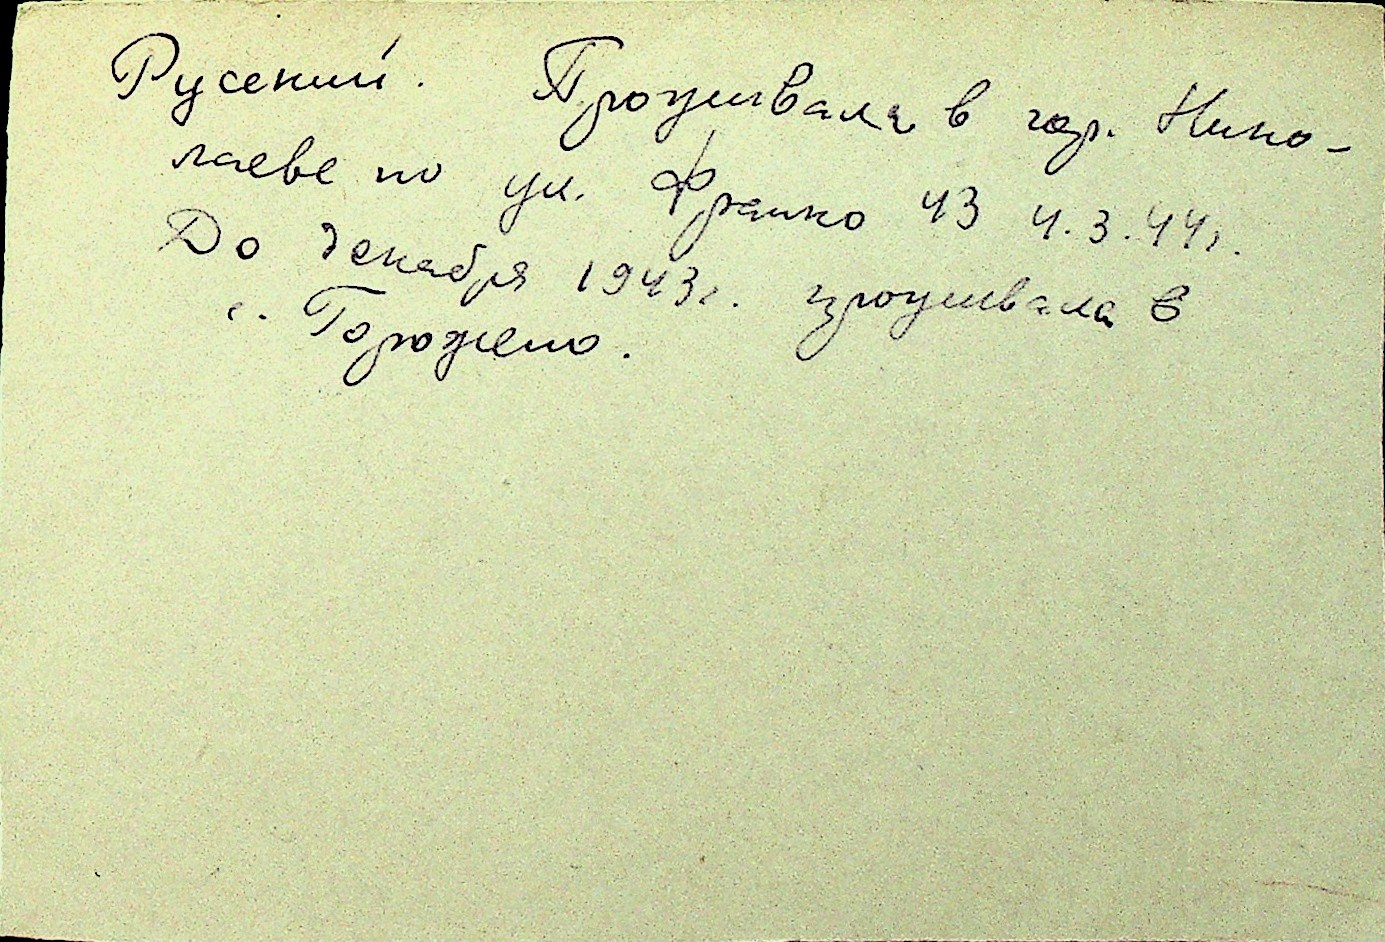 Русский. Проживала в гор. Нико-
лаеве по ул. Франко 43 4.3.44г.
До декабря 1943г. проживала в
с. Горожено.